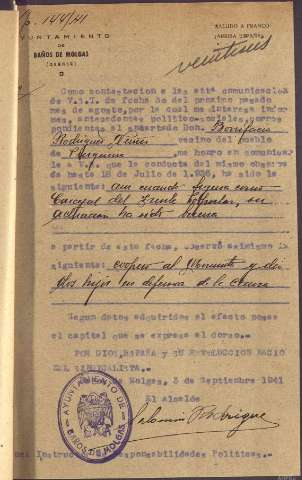 144/41
AYUNTAMIENTO
DE
BAÑOS DE MOLGAS
(ORENSE)
SALUDO A FRANCO
¡ARRIBA ESPAÑA!
Como contestacion a la atta comunicacion
de V.S.I. fecha 30 del proximo pasado
mes de agosto, por la cual me interesa informes,
antecedentes politico-sociales, corres
pondientes al apartado Don. Bonifacio
Rodriguez vecino del pueblo
de me honro en comunicar
a V.S. que la conducta del mismo observa
da hasta 18 de Julio de 1.936, ha sido la
siguiente: aun cuando figura como
Concejal del Frente Popular, su
actuacion ha sido buena
a partir de esta fecha, observó asimismo la
siguiente: coopero al Movimiento y dio
dos hijos en defensa de la Causa
Segun datos adquiridos al efecto posee
el capital que se expresa al dorso.
POR DIOS, ESPAÑA y SU REVOLUCION NACIO
NAL SINDICALISTA.
de Molgas, 3 de Septiembre 1941
El Alcalde
AYUNTAMIENTO DE BAÑOS DE MOLGAS
Responsabilidades Politicas.